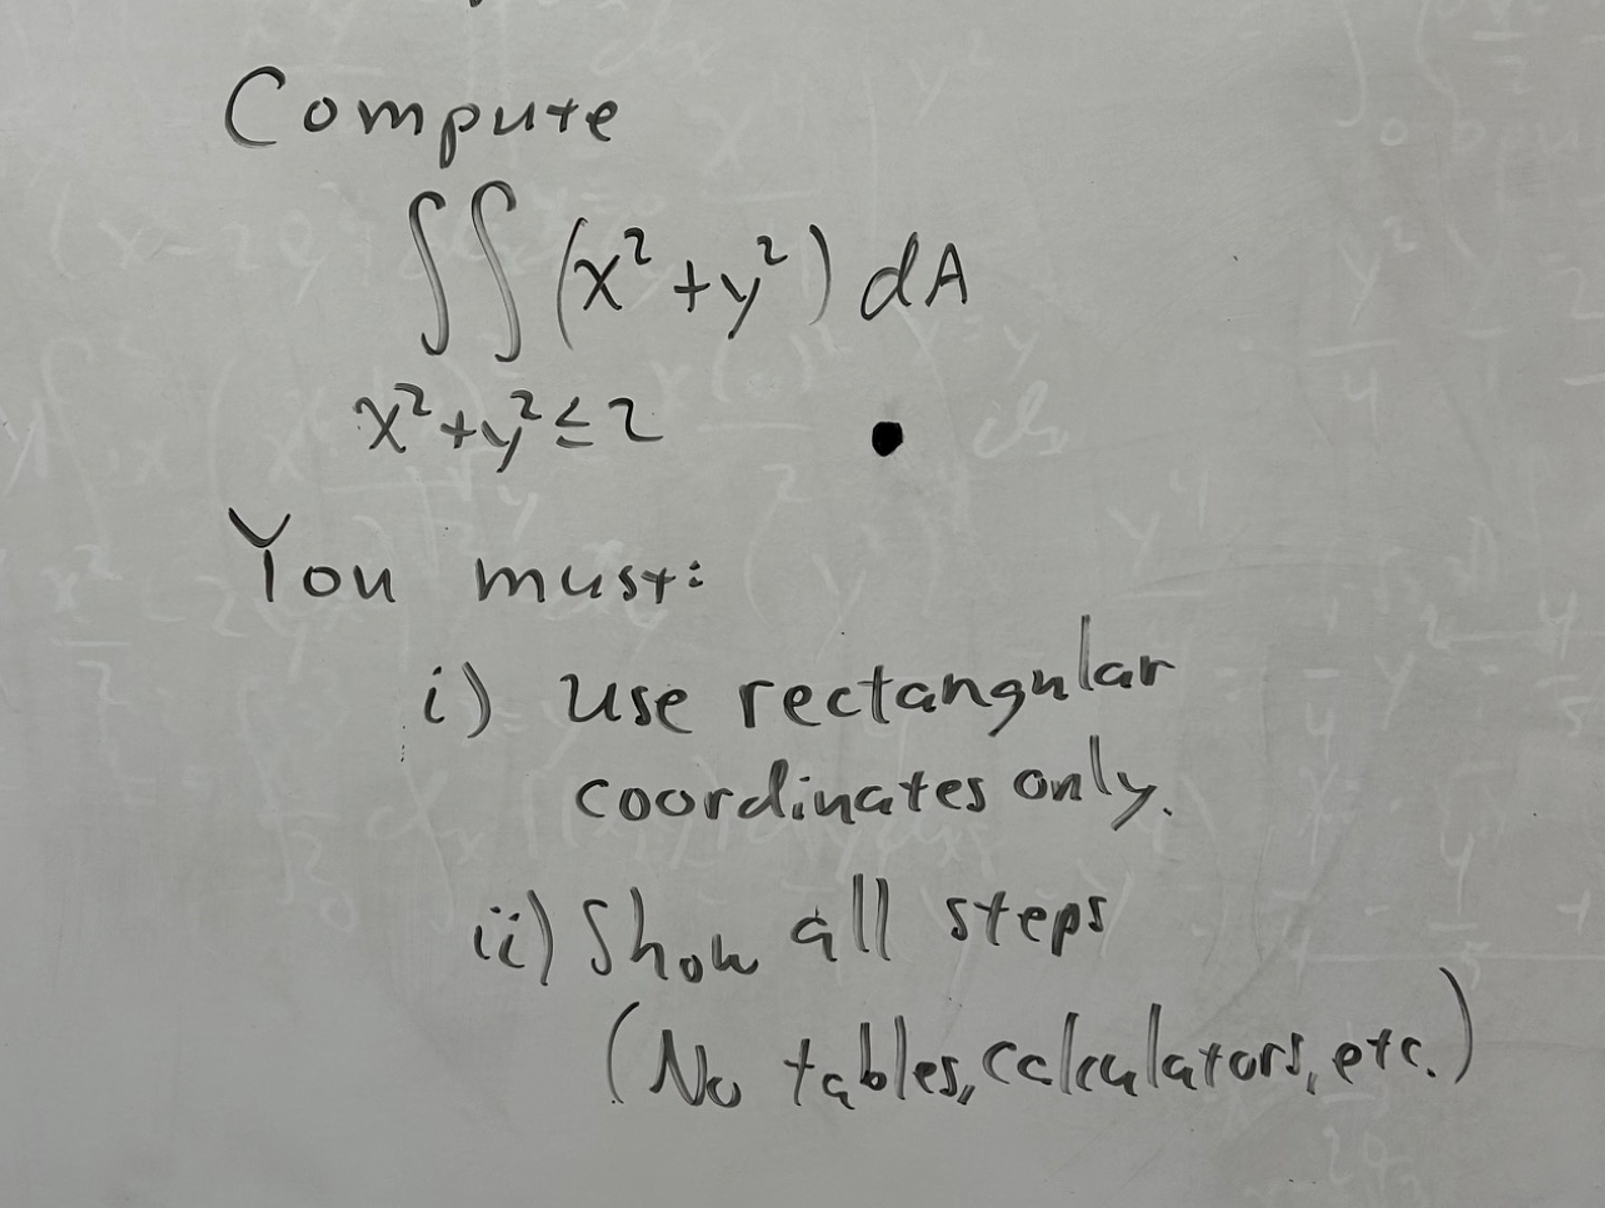 Compute
∫∫ (x² + y²) dA
x² + y² ≤ 2
You must:
i) use rectangular
coordinates only.
ii) Show all steps
(No tables, calculators, etc.)